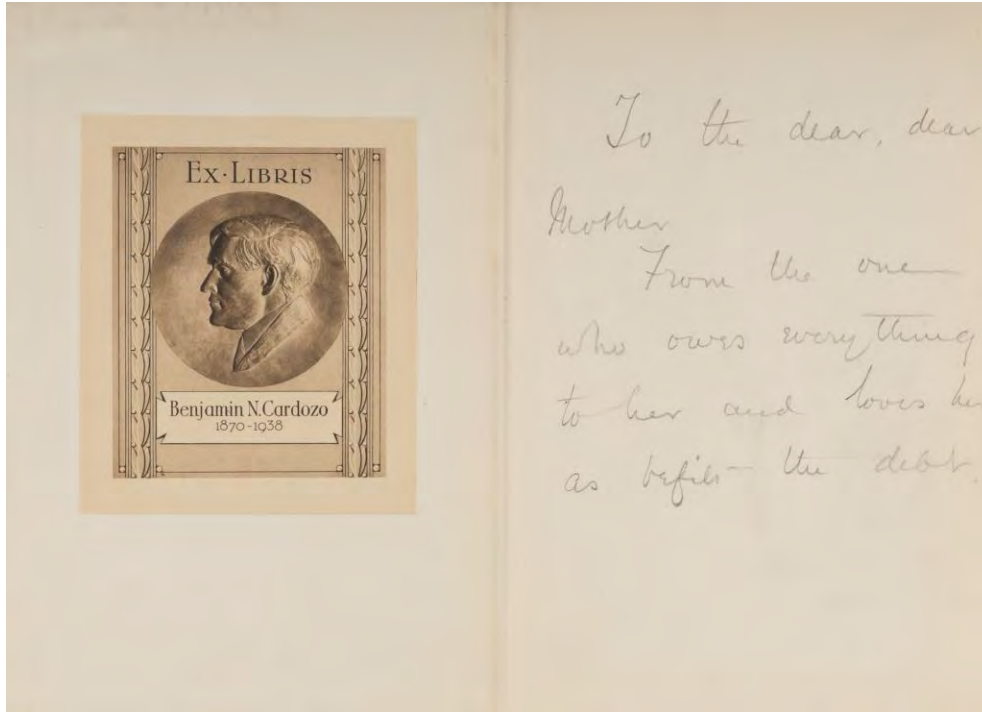 EX·LIBRIS
Benjamin N. Cardozo
1870-1938
To the dear, dear
Mother
From the one
who owes everything
to her and loves her
as befits the debt.